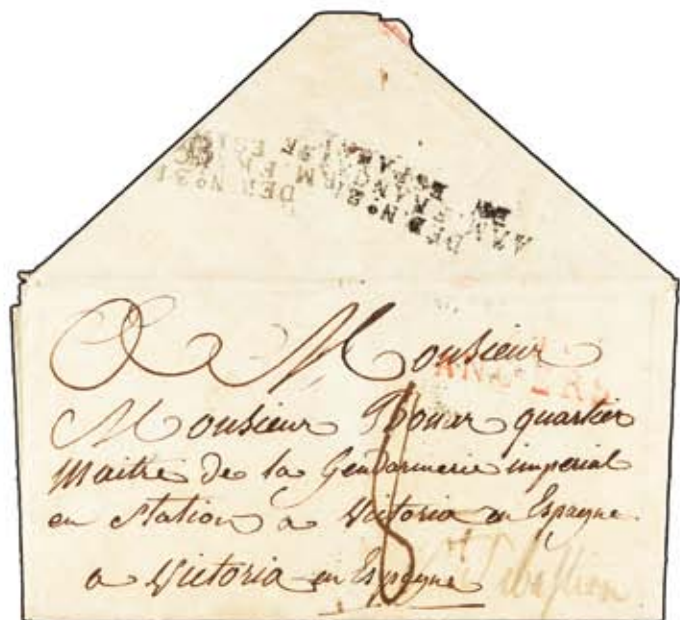 DEB Nº 31
DEB Nº 2
ARM FRANCAISE
EN ESPAGNE
A Monsieur
Monsieur Bonar quartier
Maitre de la Gendarmerie imperial
en Station a Victoria en Espagne
a Victoria en Espagne
8
St Sebastien